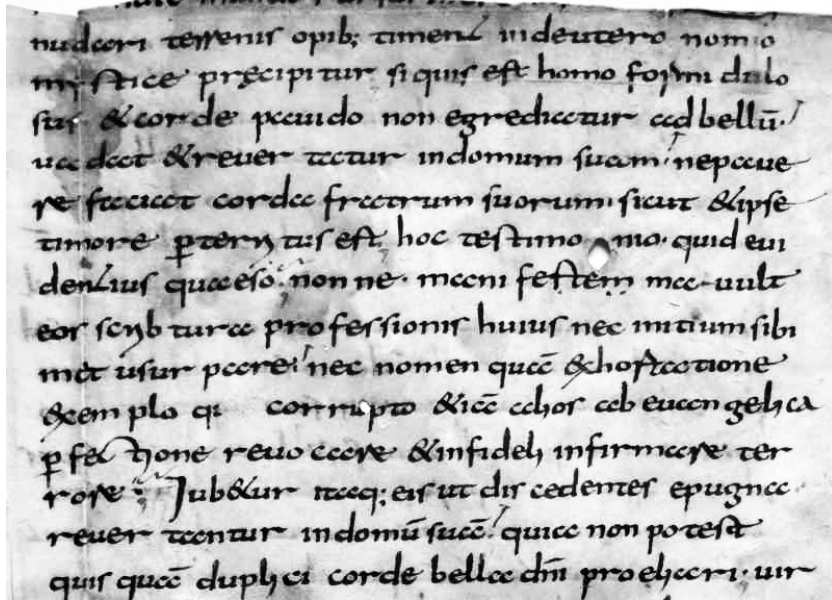 nudari terrenis opib; timent in deutero nomio
mystice pręcipitur si quis est homo formidulo
sus & corde pauido non egrediatur ad bellū
uadat & reuertatur in domum suam ne paue
re faciat corda fratrum suorum sicut & ipse
timore ꝑterritus est hoc testimonio quid eui
dentius quaeso non ne manifestem ma uult
eos scribtura professionis huius nec initium sibi
met usurpare nec nomen quā exhortatione
& exemplo corrupto & iā ahos ab euangelica
ꝑfectione reuocare & infideli infirmare ter
rore Iubetur itaq; eis ut discedentes e pugna
reuertantur in domū suā quia non potest
quis quā duplici corde bella dn̄i proeliari uir